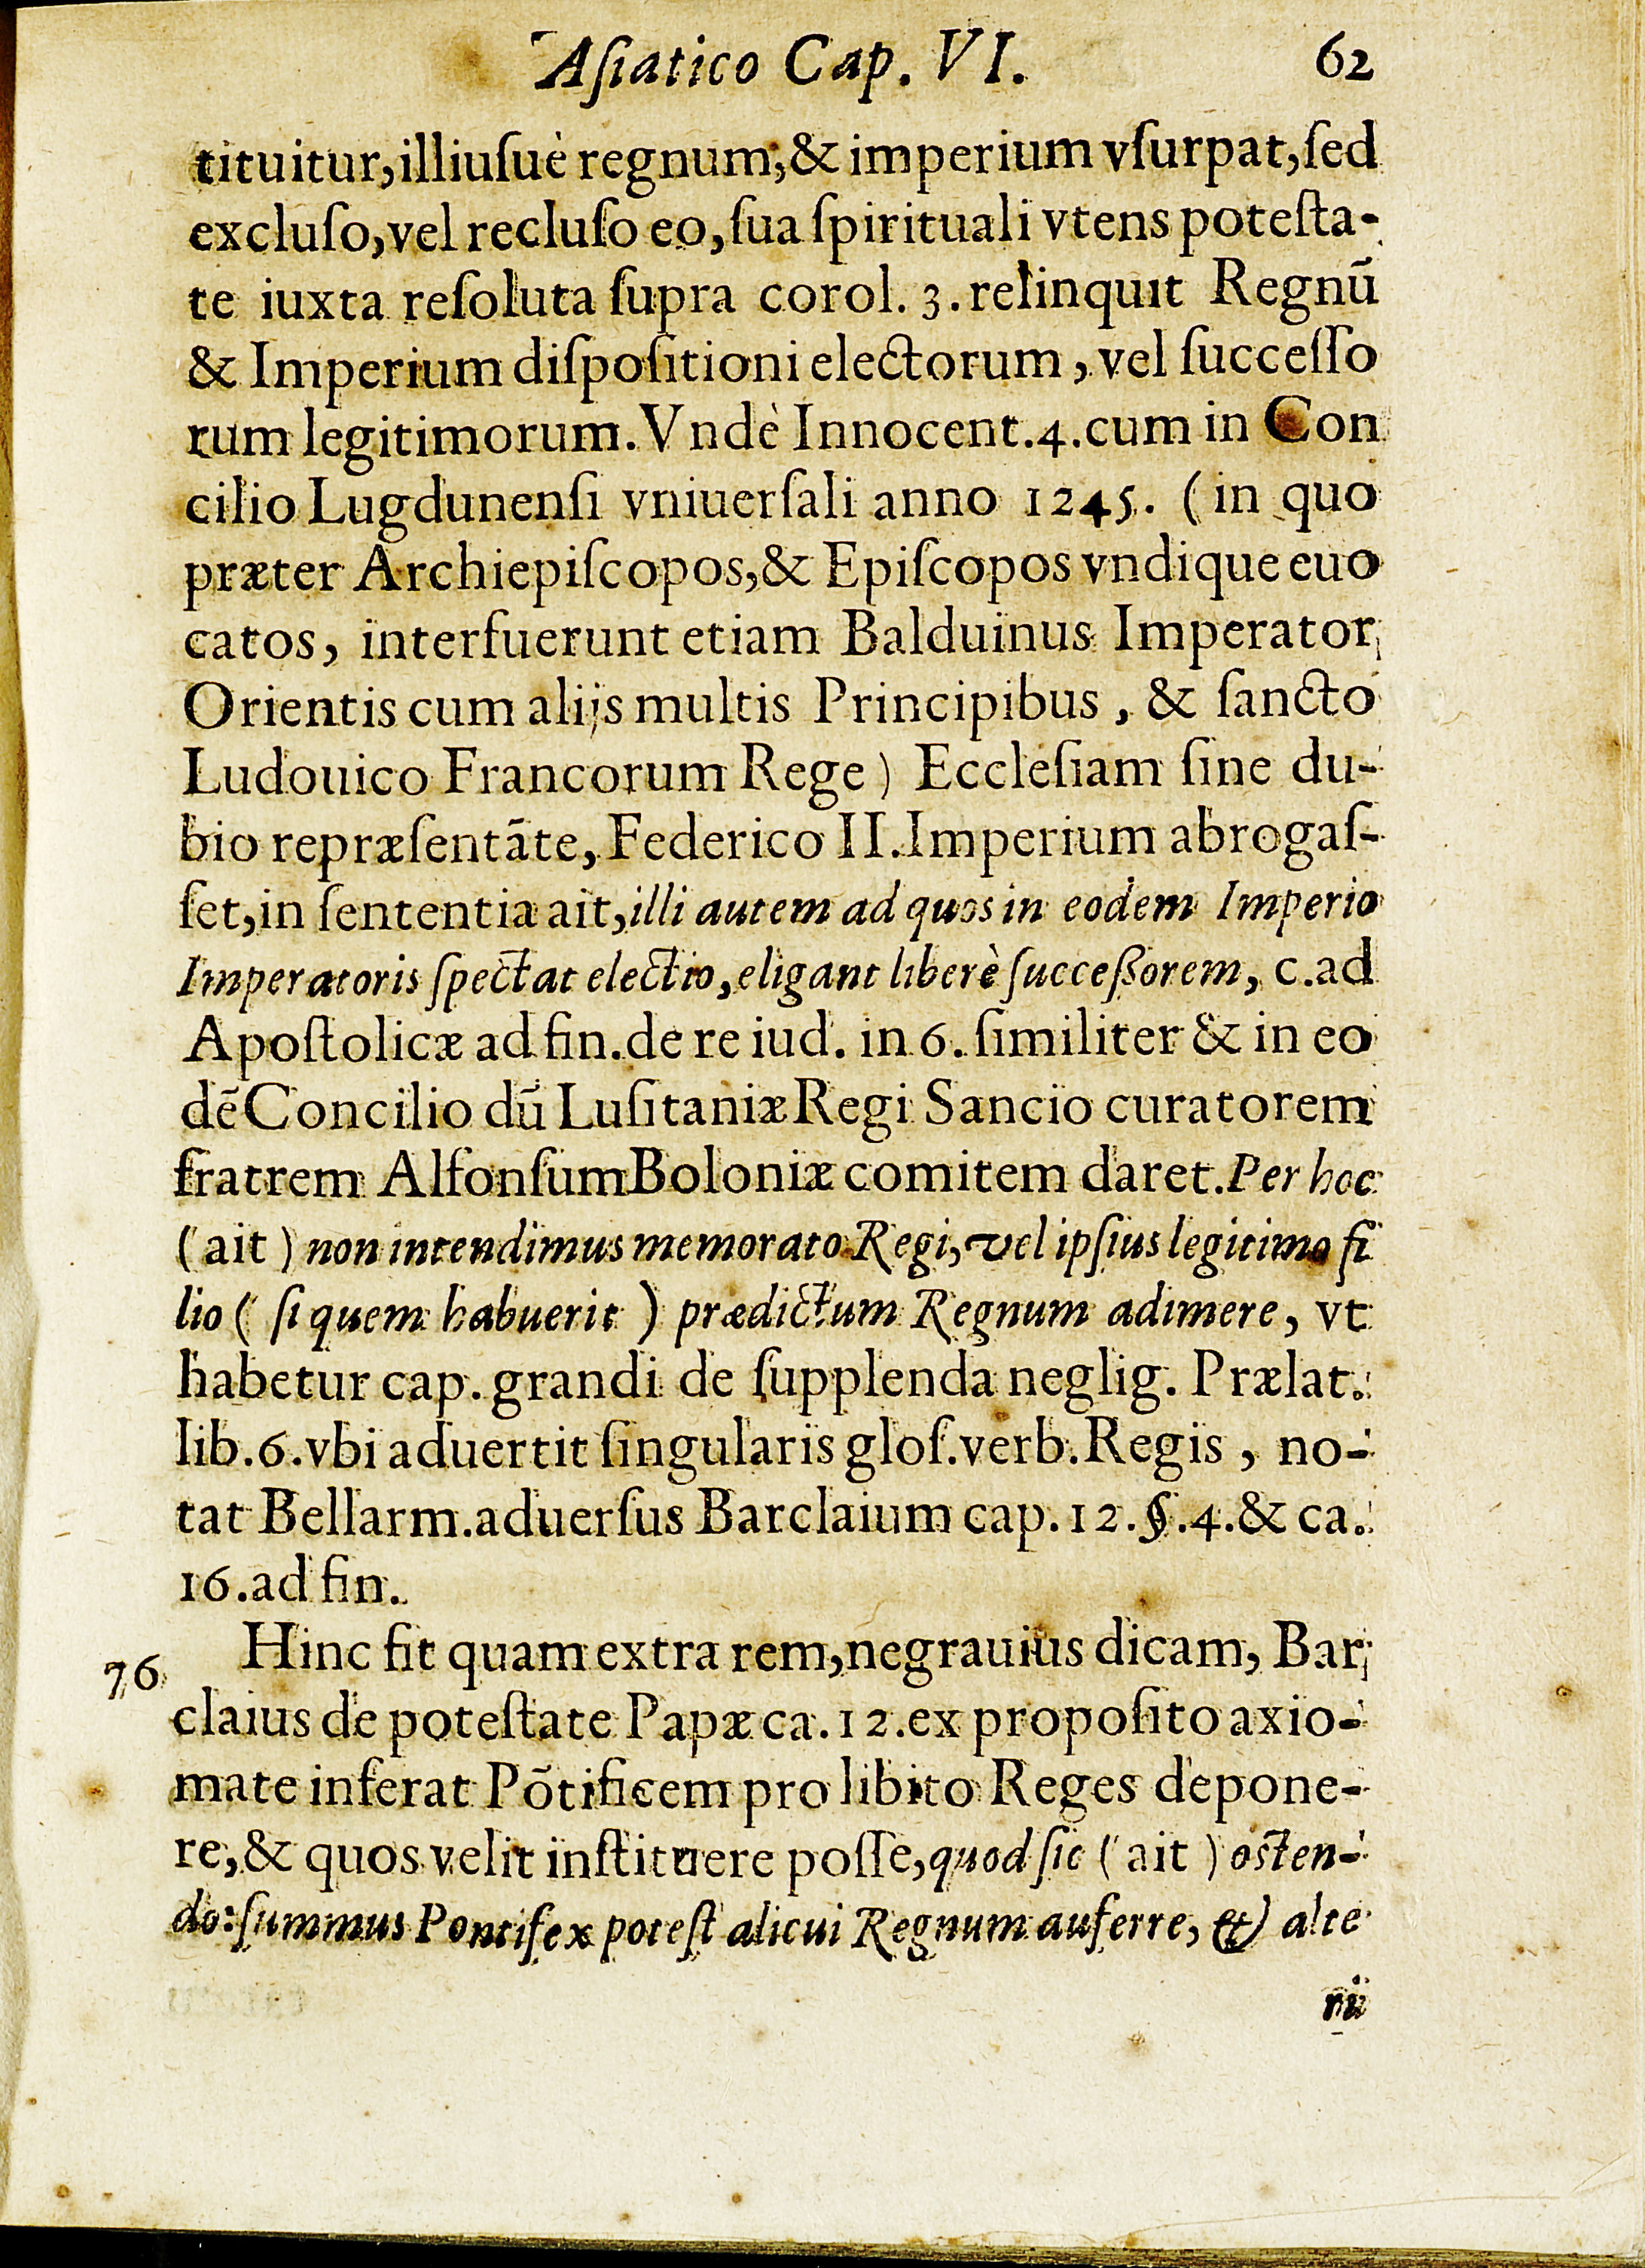 Aſiatico Cap. VI. 62
tituitur,illiuſuè regnum,& imperium vſurpat,ſed
excluſo,vel recluſo eo,ſua ſpirituali vtens poteſta-
te iuxta reſoluta ſupra corol. 3. relinquit Regnū
& Imperium diſpoſitioni electorum, vel ſucceſſo
rum legitimorum. Vndè Innocent.4.cum in Con
cilio Lugdunenſi vniuerſali anno 1245. (in quo
præter Archiepiſcopos,& Epiſcopos vndique euo
catos, interfuerunt etiam Balduinus Imperator
Orientis cum alijs multis Principibus, & ſancto
Ludouico Francorum Rege) Eccleſiam ſine du-
bio repræſentāte, Federico II.Imperium abrogaſ-
ſet,in ſententia ait,illi autem ad quos in eodem Imperio
Imperatoris ſpectat electio,eligant liberè ſucceßorem, c.ad
Apoſtolicæ ad fin.de re iud. in 6. ſimiliter & in eo
dē Concilio dū Luſitaniæ Regi Sancio curatorem
fratrem Alfonſum Boloniæ comitem daret.Per hoc
(ait) non intendimus memorato Regi,vel ipſius legitimo fi
lio (ſi quem habuerit) prædictum Regnum adimere, vt
habetur cap. grandi de ſupplenda neglig. Prælat.
lib.6.vbi aduertit ſingularis gloſ.verb.Regis, no-
tat Bellarm.aduerſus Barclaium cap.12.§.4.& ca.
16.ad fin.
76 Hinc fit quam extra rem,ne grauius dicam, Bar
claius de poteſtate Papæ ca.12.ex propoſito axio-
mate inferat Pōtificem pro libito Reges depone-
re,& quos velit inſtituere poſſe,quod ſic (ait) oſten-
do:ſummus Pontifex poteſt alicui Regnum auferre, & alte
rii